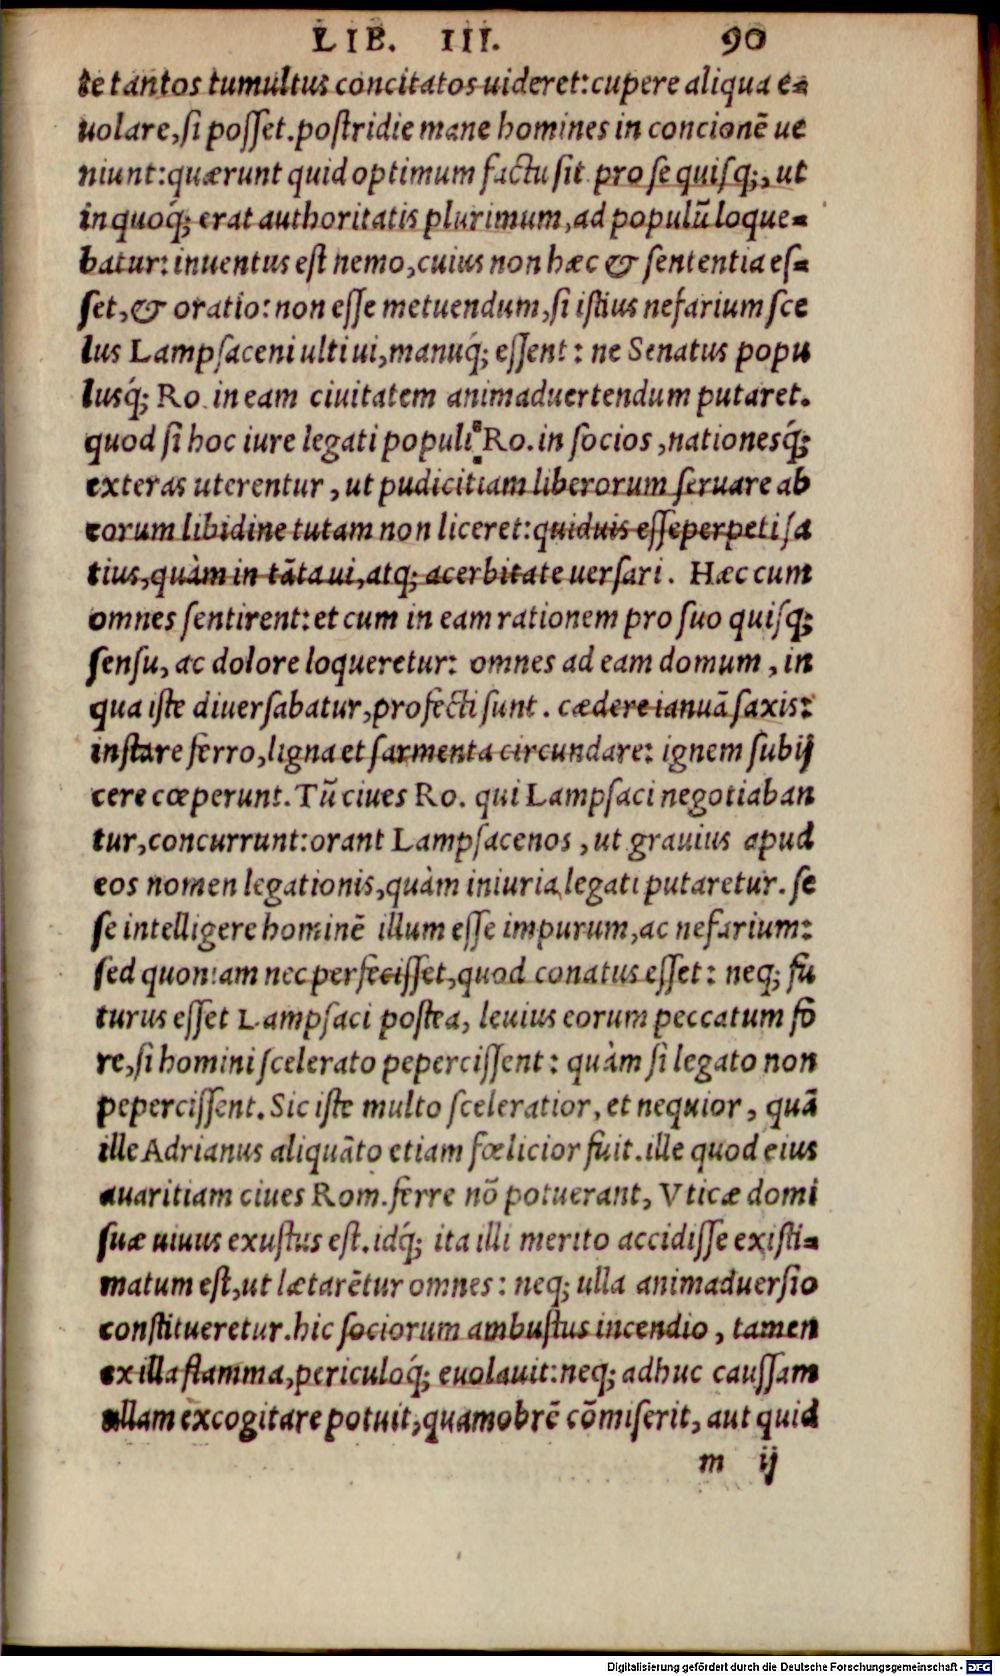 LIB. III. 90
te tantos tumultus concitatos uideret: cupere aliqua e-
uolare, si posset. postridie mane homines in concionē ue
niunt: quærunt quid optimum factu sit. pro se quisq;, ut
in quoq́; erat authoritatis plurimum, ad populū loque-
batur: inuentus est nemo, cuius non hæc & sententia es-
set, & oratio: non esse metuendum, si istius nefarium sce
lus Lampsaceni ulti ui, manuq́; essent: ne Senatus popu
lusq́; Ro. in eam ciuitatem animaduertendum putaret.
quod si hoc iure legati populi Ro. in socios, nationesq́;
exteras uterentur, ut pudicitiam liberorum seruare ab
eorum libidine tutam non liceret: quiduis esse perpeti sa
tius, quàm in tāta ui, atq; acerbitate uersari. Hæc cum
omnes sentirent: et cum in eam rationem pro suo quisq;
sensu, ac dolore loqueretur: omnes ad eam domum, in
qua iste diuersabatur, profecti sunt. cædere ianuā saxis:
instare ferro, ligna et sarmenta circundare: ignem subij
cere cœperunt. Tū ciues Ro. qui Lampsaci negotiaban
tur, concurrunt: orant Lampsacenos, ut grauius apud
eos nomen legationis, quàm iniuria legati putaretur. se
se intelligere hominē illum esse impurum, ac nefarium:
sed quoniam nec perfecisset, quod conatus esset: neq; fu
turus esset Lampsaci postea, leuius eorum peccatum fo
re, si homini scelerato pepercissent: quàm si legato non
pepercissent. Sic iste multo sceleratior, et nequior, quā
ille Adrianus aliquāto etiam fœlicior fuit. ille quod eius
auaritiam ciues Rom. ferre nō potuerant, Vticæ domi
suæ uiuus exustus est. idq́; ita illi merito accidisse existi-
matum est, ut lætarētur omnes: neq; ulla animaduersio
constitueretur. hic sociorum ambustus incendio, tamen
ex illa flamma, periculoq́; euolauit: neq; adhuc caussam
ullam excogitare potuit, quamobrē cōmiserit, aut quid
m ij
Digitalisierung gefördert durch die Deutsche Forschungsgemeinschaft - DFG